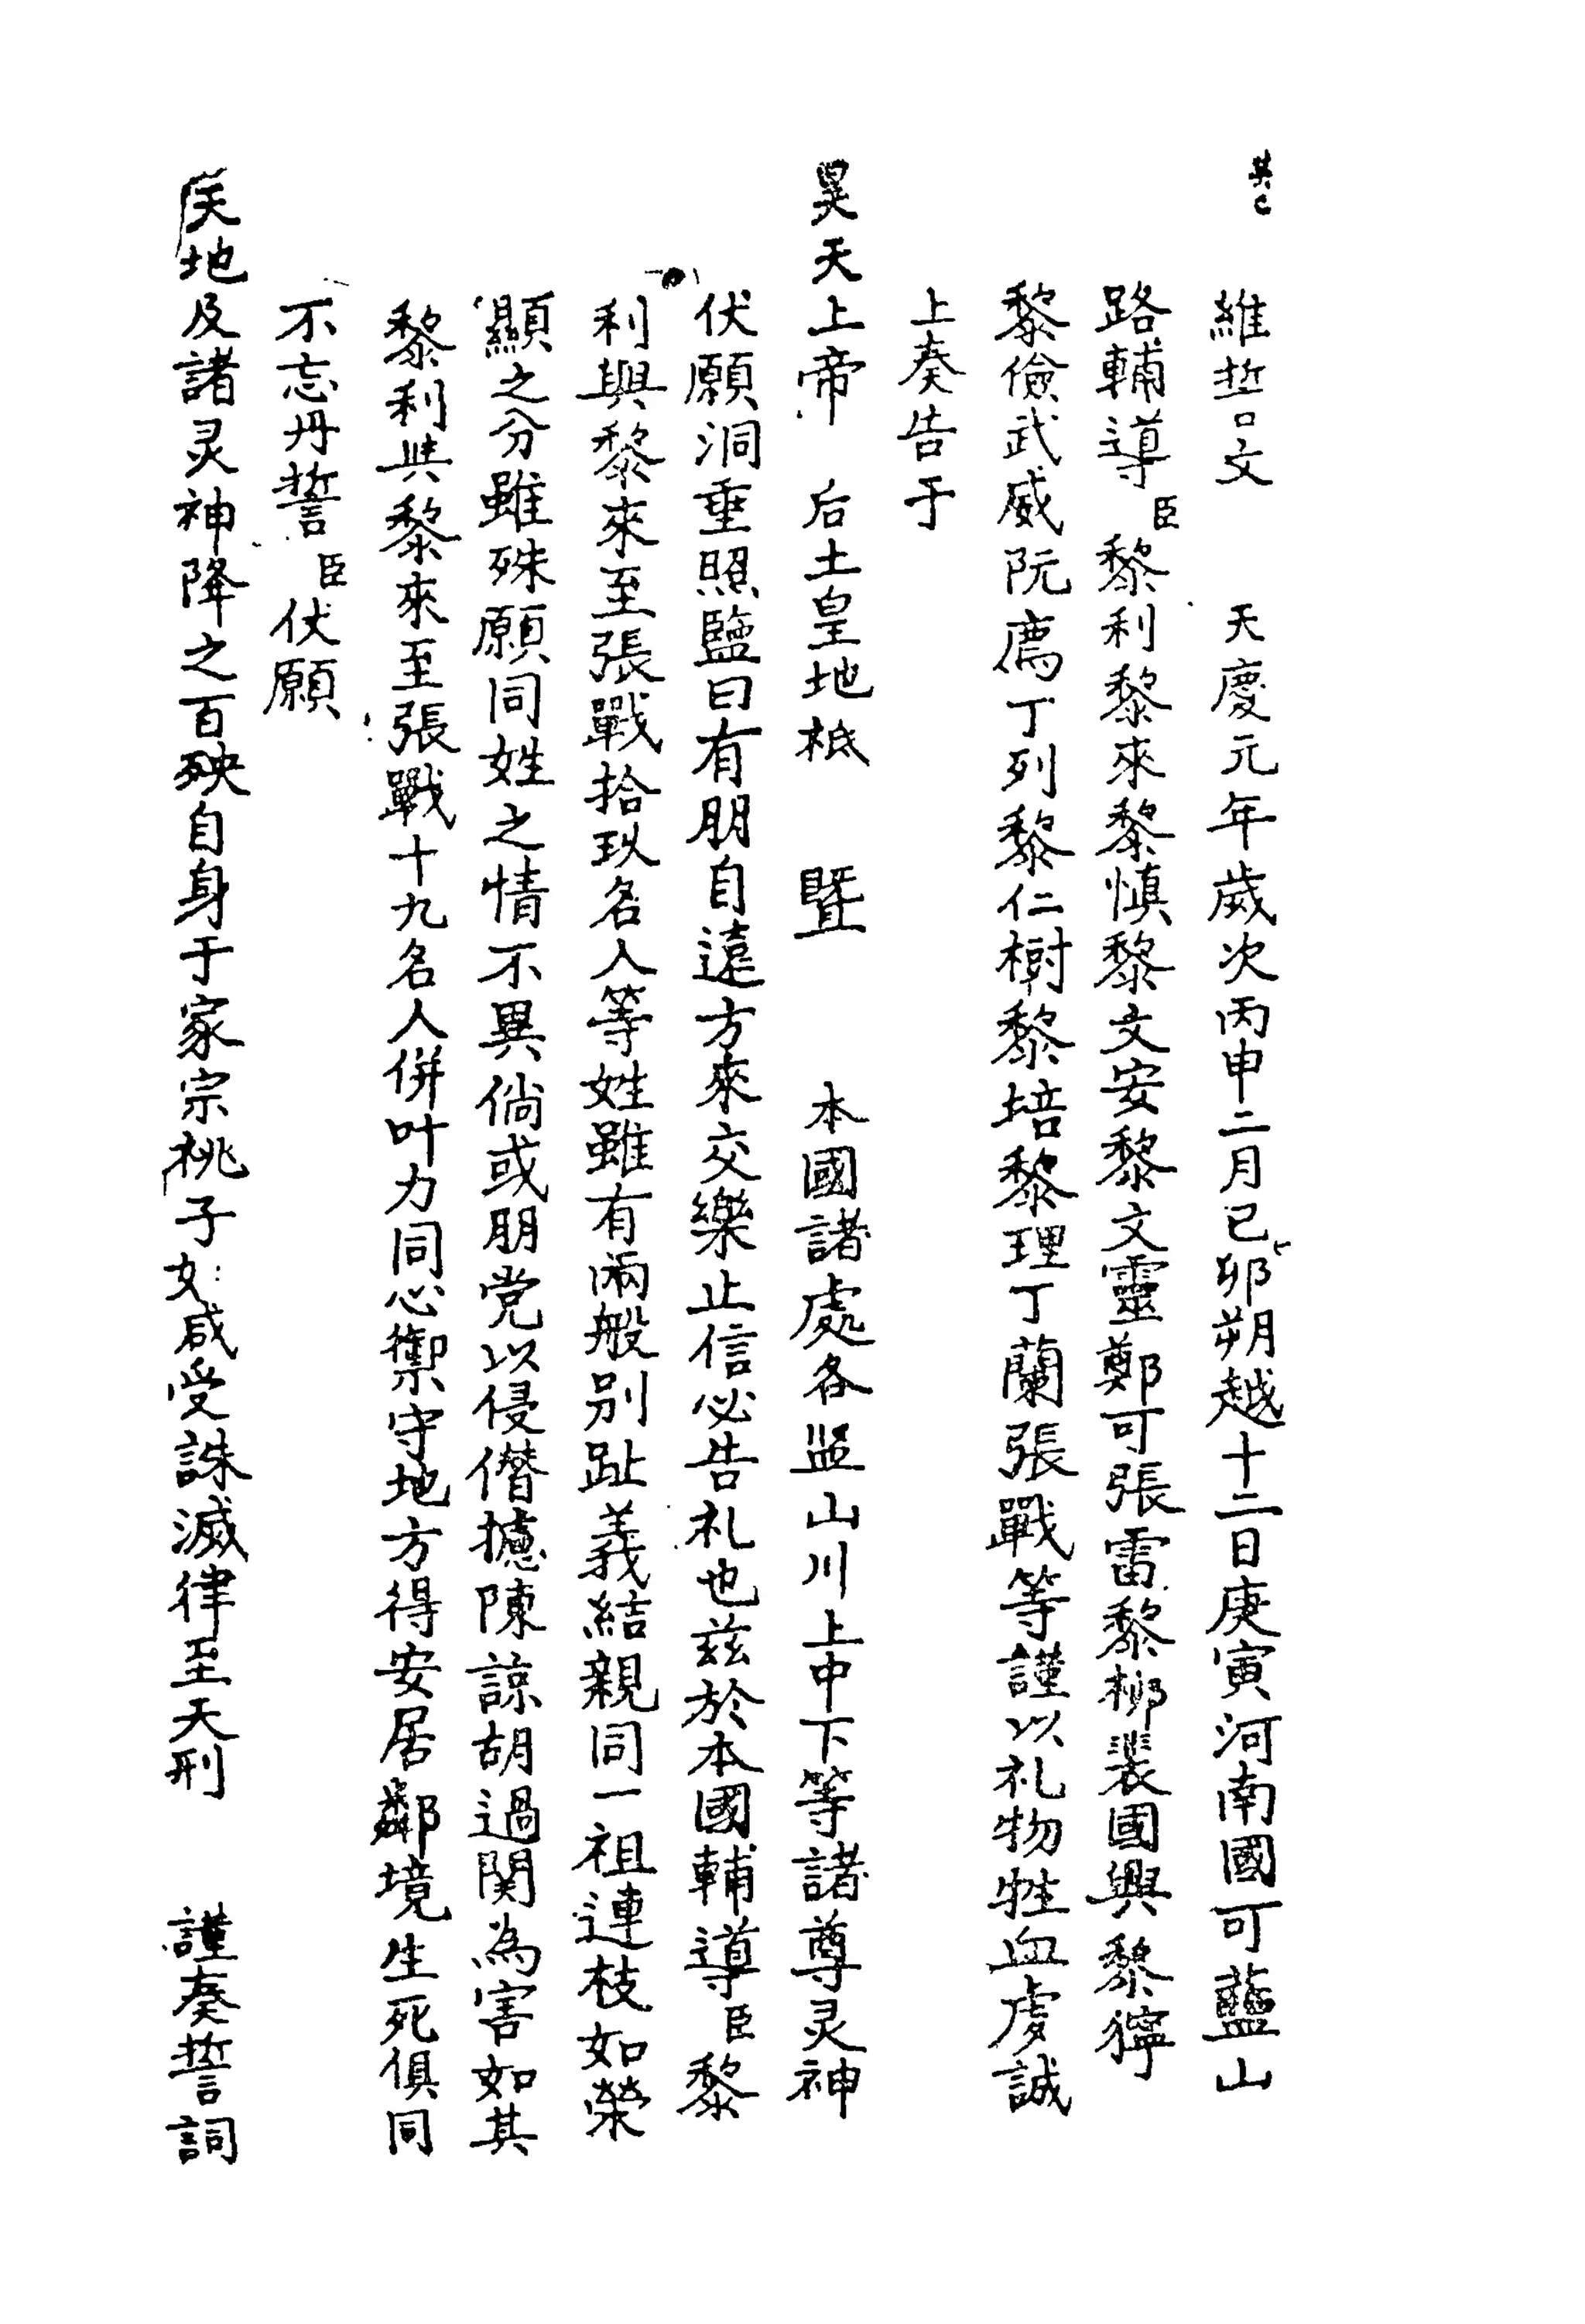 維誓文 天慶元年歲次丙申二月已夘朔越十二日庚寅河南國可藍山
路輔導臣黎利黎來黎慎黎文安黎文靈鄭可張雷黎柳裴國興黎獰
黎儉武威阮廌丁列黎仁樹黎培黎理丁蘭張戰等謹以礼物牲血虔誠
上奏告于
昊天上帝 后土皇地柢 暨 本國諸處各盟山川上中下等諸尊灵神
伏願洞垂照鹽曰有朋自遠方來交樂止信必告礼也茲於本國輔導臣黎
利與黎來至張戰拾玖名人等姓雖有兩般別趾義結親同一祖連枝如榮
顯之分雖殊願同姓之情不異倘或朋党以侵僣攄陳諒胡過関為害如其
黎利與黎來至張戰十九名人併叶力同心禦守地方得安居鄰境生死俱同
不忘丹誓臣伏願
天地及諸灵神降之百殃自身于家宗桃子女咸受誅滅律至天刑 謹奏誓詞